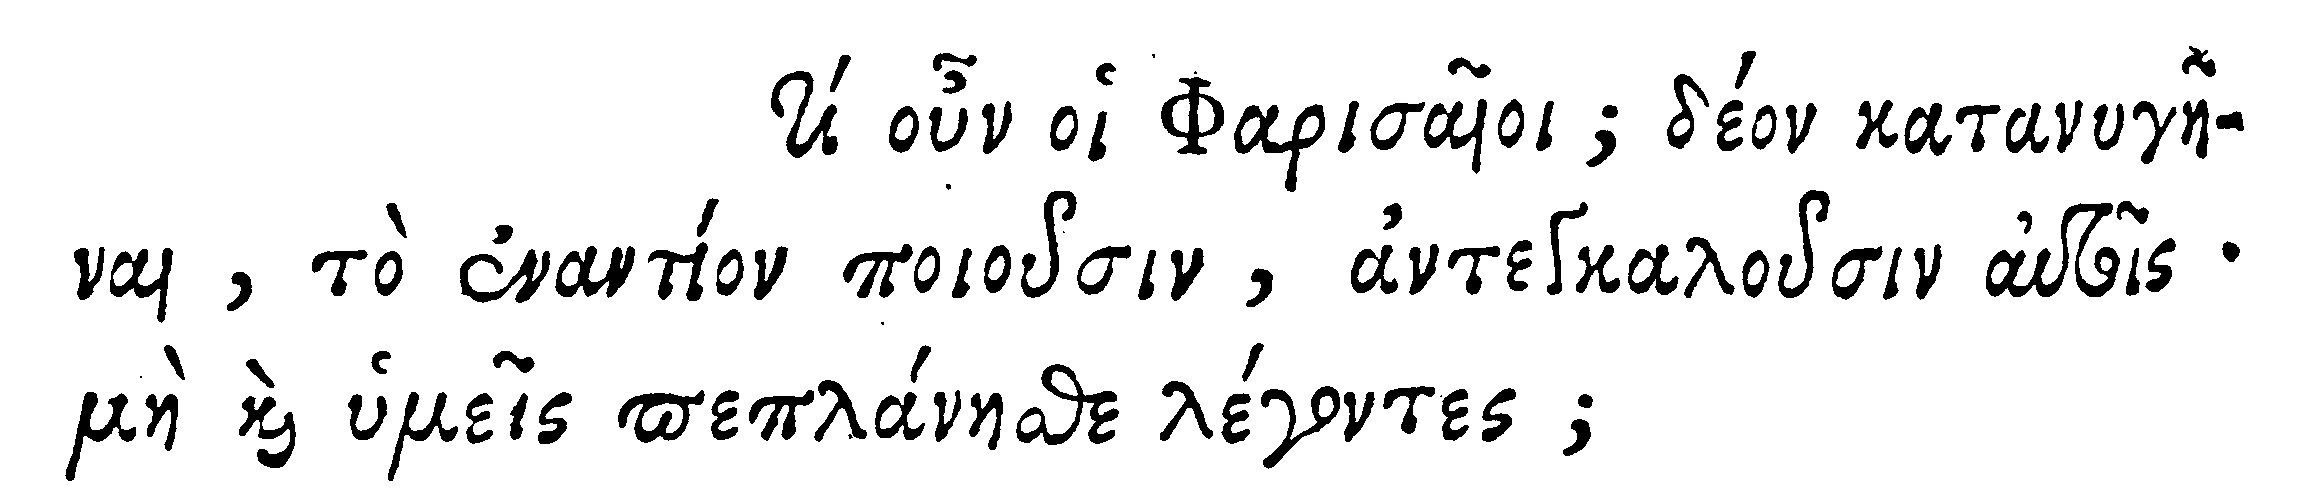 Τί οὖν οἱ Φαρισαῖοι; δέον κατανυγῆ-
ναι, τὸ ἐναντίον ποιοῦσιν, ἀντεγκαλοῦσιν αὐτοῖς·
μὴ καὶ ὑμεῖς πεπλάνησθε λέγοντες;